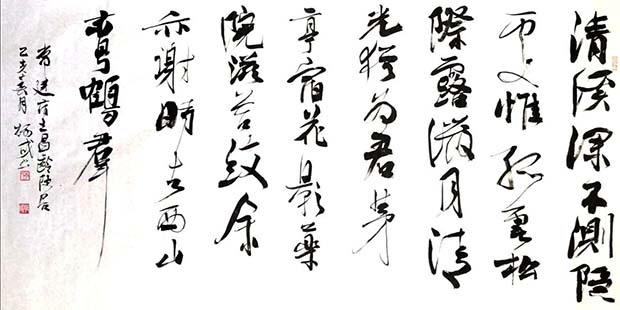 清溪深不測隐
處惟孤雲松
際露微月清
光猶为君茅
亭宿花影藥
院滋苔紋余
亦謝時去西山
鸞鶴羣
常建宿王昌齡隐居